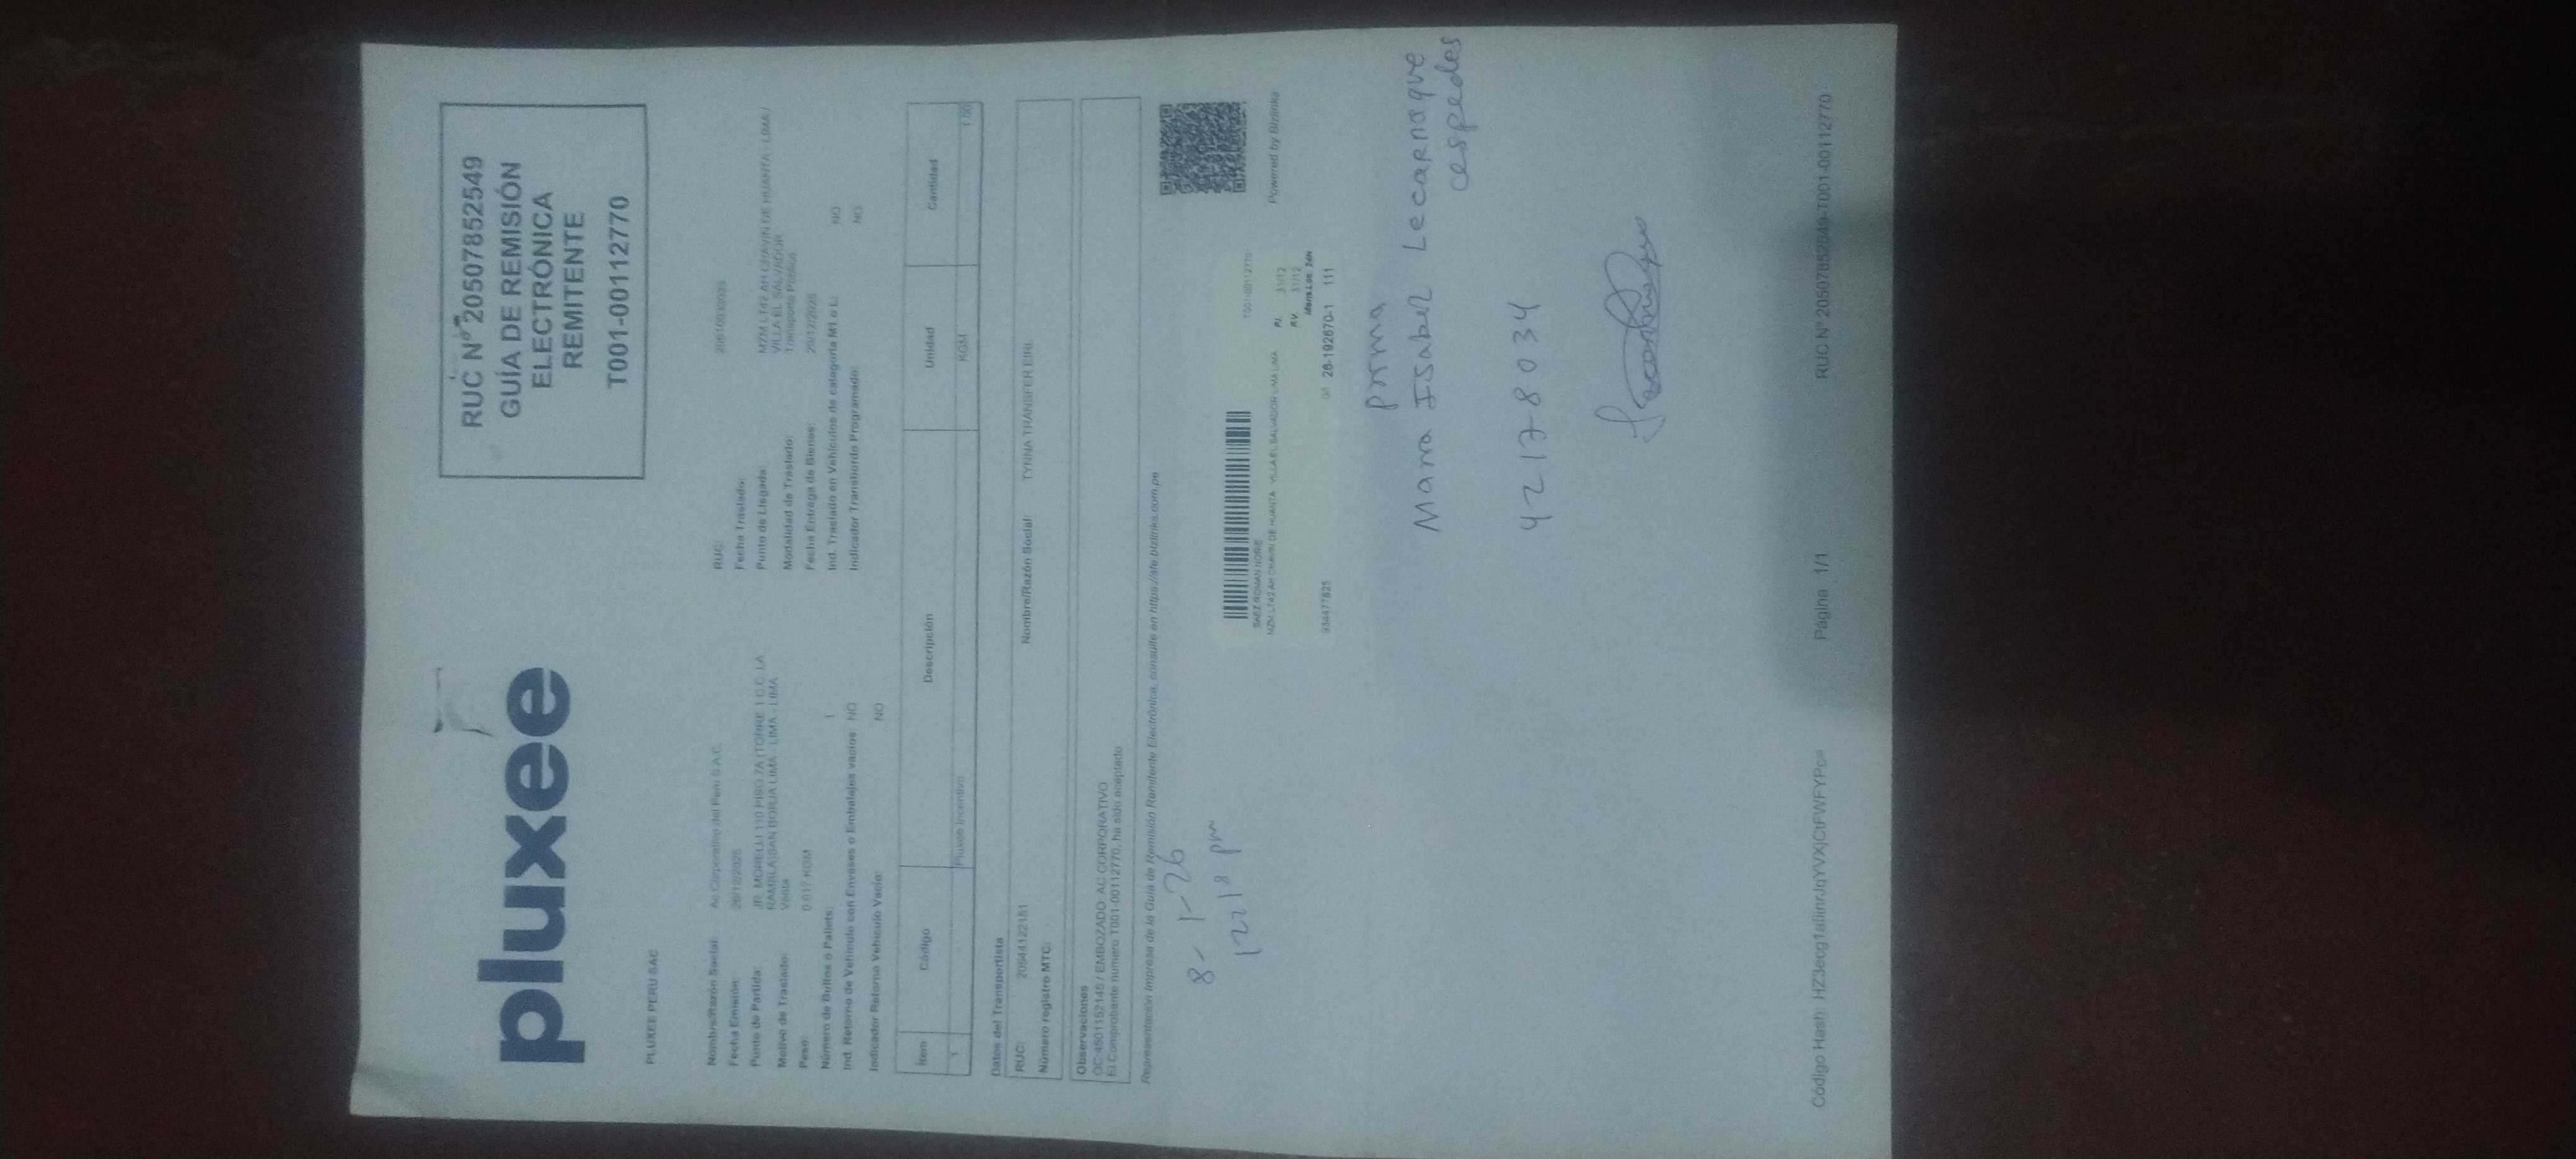 pluxee
RUC N° 20507852549
GUÍA DE REMISIÓN
ELECTRÓNICA
REMITENTE
T001-00112770
PLUXEE PERU SAC
Nombre/Razón Social: Ac Corporativo del Peru S.A.C.
RUC:
Fecha Emisión:
Fecha Traslado:
Punto de Partida: JR. MORELLI 110 PISO 7A (TORRE 1 C.C. LA
RAMBLA)SAN BORJA LIMA - LIMA - LIMA
Punto de Llegada: MZM LT42 AH CHAVIN DE HUANTA - LIMA /
VILLA EL SALVADOR
Motivo de Traslado: Venta
Modalidad de Traslado: Transporte Público
Peso: 0.017 KGM
Fecha Entrega de Bienes:
Número de Bultos o Pallets: 1
Ind. Traslado en Vehículos de categoría M1 o L: NO
Ind. Retorno de Vehículo con Envases o Embalajes vacíos NO
Indicador Transbordo Programado: NO
Indicador Retorno Vehículo Vacío: NO
Item Código Descripción Unidad Cantidad
1 Pluxee Incentivo KGM 1.00
Datos del Transportista
RUC: Nombre/Razón Social: TYNNA TRANSFER EIRL
Número registro MTC:
Observaciones
OC:4501152145 / EMBOZADO: AC CORPORATIVO
El Comprobante numero T001-00112770, ha sido aceptado
Representación Impresa de la Guía de Remisión Remitente Electrónica, consulte en https://sfe.bizlinks.com.pe
8-1-26
Powered by Bizlinks
T001-00112770
MZM LT42 AH CHAVIN DE HUANTA VILLA EL SALVADOR LIMA LIMA
RV. 31/12
934477825
28-192670-1 111
prima
Maria Isabel Lecarnaque
cespedes
42178034
Página 1/1
RUC N° 20507852549-T001-00112770